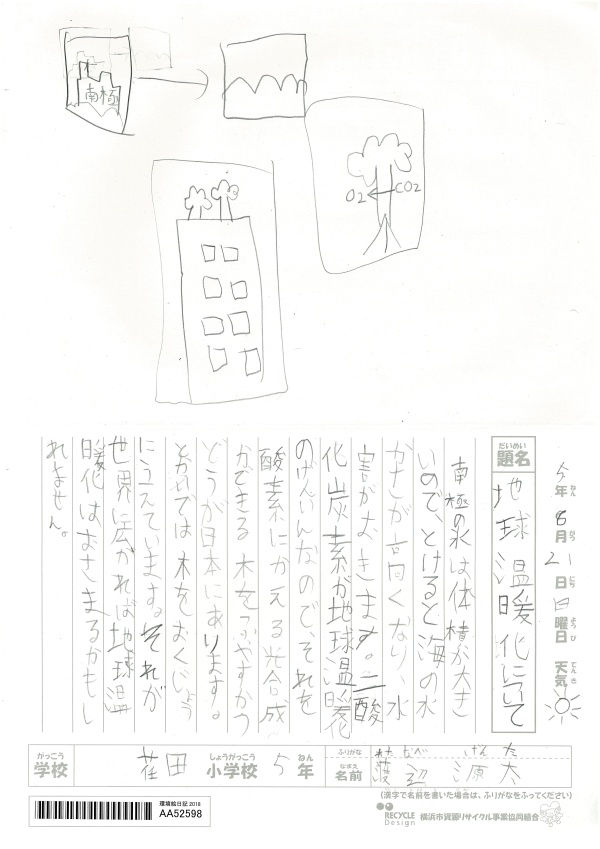 南極
O2
CO2
今年6月21日日曜日 天気
ねん
がつ
にち
ようび
てんき
だいめい
題名
地球温暖化について
南極の氷は体積が大き
いので、とけると海の水
かさが高くなり、水
害がおきます。二酸
化炭素が地球温暖化
のげんいんなので、それを
酸素にかえる光合成
ができる木をふやすかつ
どうが日本にあります。
とかいでは木をおくじょう
にうえています。それが
世界に広がれば地球温
暖化はおさまるかもし
れません。
がっこう
学校
荏田
しょうがっこう
小学校
5
ねん
年
ふりがな
わたなべ げんた
なまえ
名前
渡辺 源太
(漢字で名前を書いた場合は、ふりがなをふってください)
環境絵日記 2018
AA52598
RECYCLE Design
横浜市資源リサイクル事業協同組合